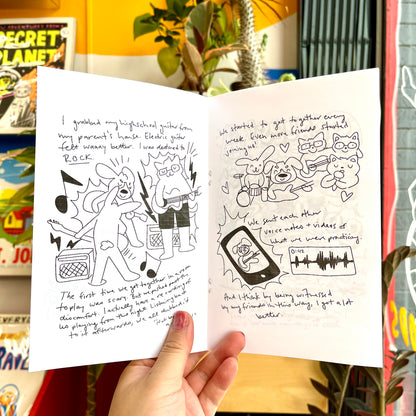 ADVENTURES FROM
SECRET
PLANET
I grabbed my highschool guitar from
my parent's house. Electric guitar
felt waaay better. I was destined to
ROCK.
The first time we got together in a room
to play was scary, but we pushed past the
discomfort. I actually have a recording of
us playing from this night. Listening back
to it afterwards, we all thought
We started to get together every
week. Even more friends started
joining us!
We sent each other
voice notes + videos of
what we were practicing.
And I think by being witnessed
by my friends in this way, I got a lot
better.